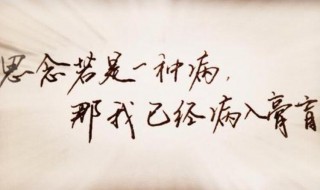 思念若是一种病，
那我已经病入膏肓